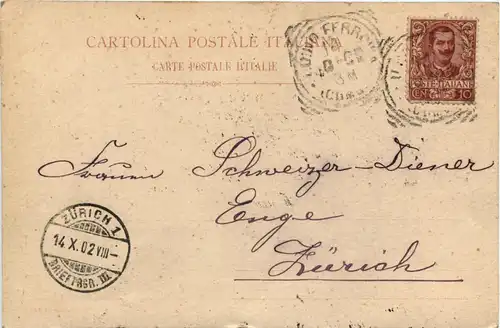 CARTOLINA POSTALE ITALIANA
CARTE POSTALE D'ITALIE
POSTE ITALIANE
10
(COMO)
Frauen Schweizer-Diener
Enge
Zürich
ZÜRICH 1
14.X.02 VIII-
BRIEFTRGR. III